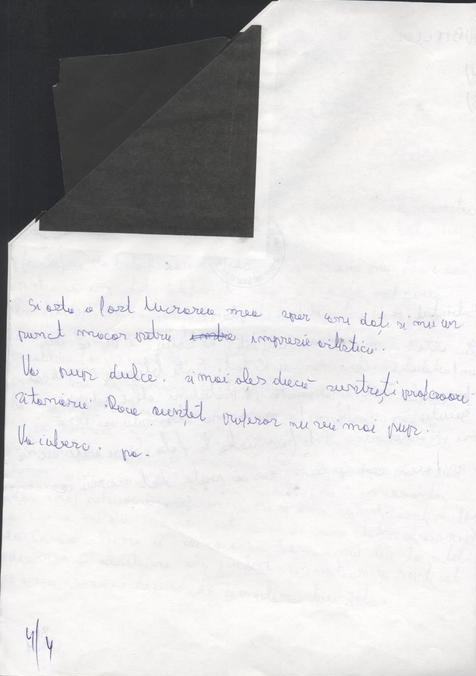 și asta a fost lucrarea mea sper îmi dați și mie un
punct macar pătru impresie artistică.
Va pup dulce. și mai ales dacă sunteți profesoara
tânără. Daca sunteț profesor nu vei mai pup.
Va iubesc. pa.
4/4